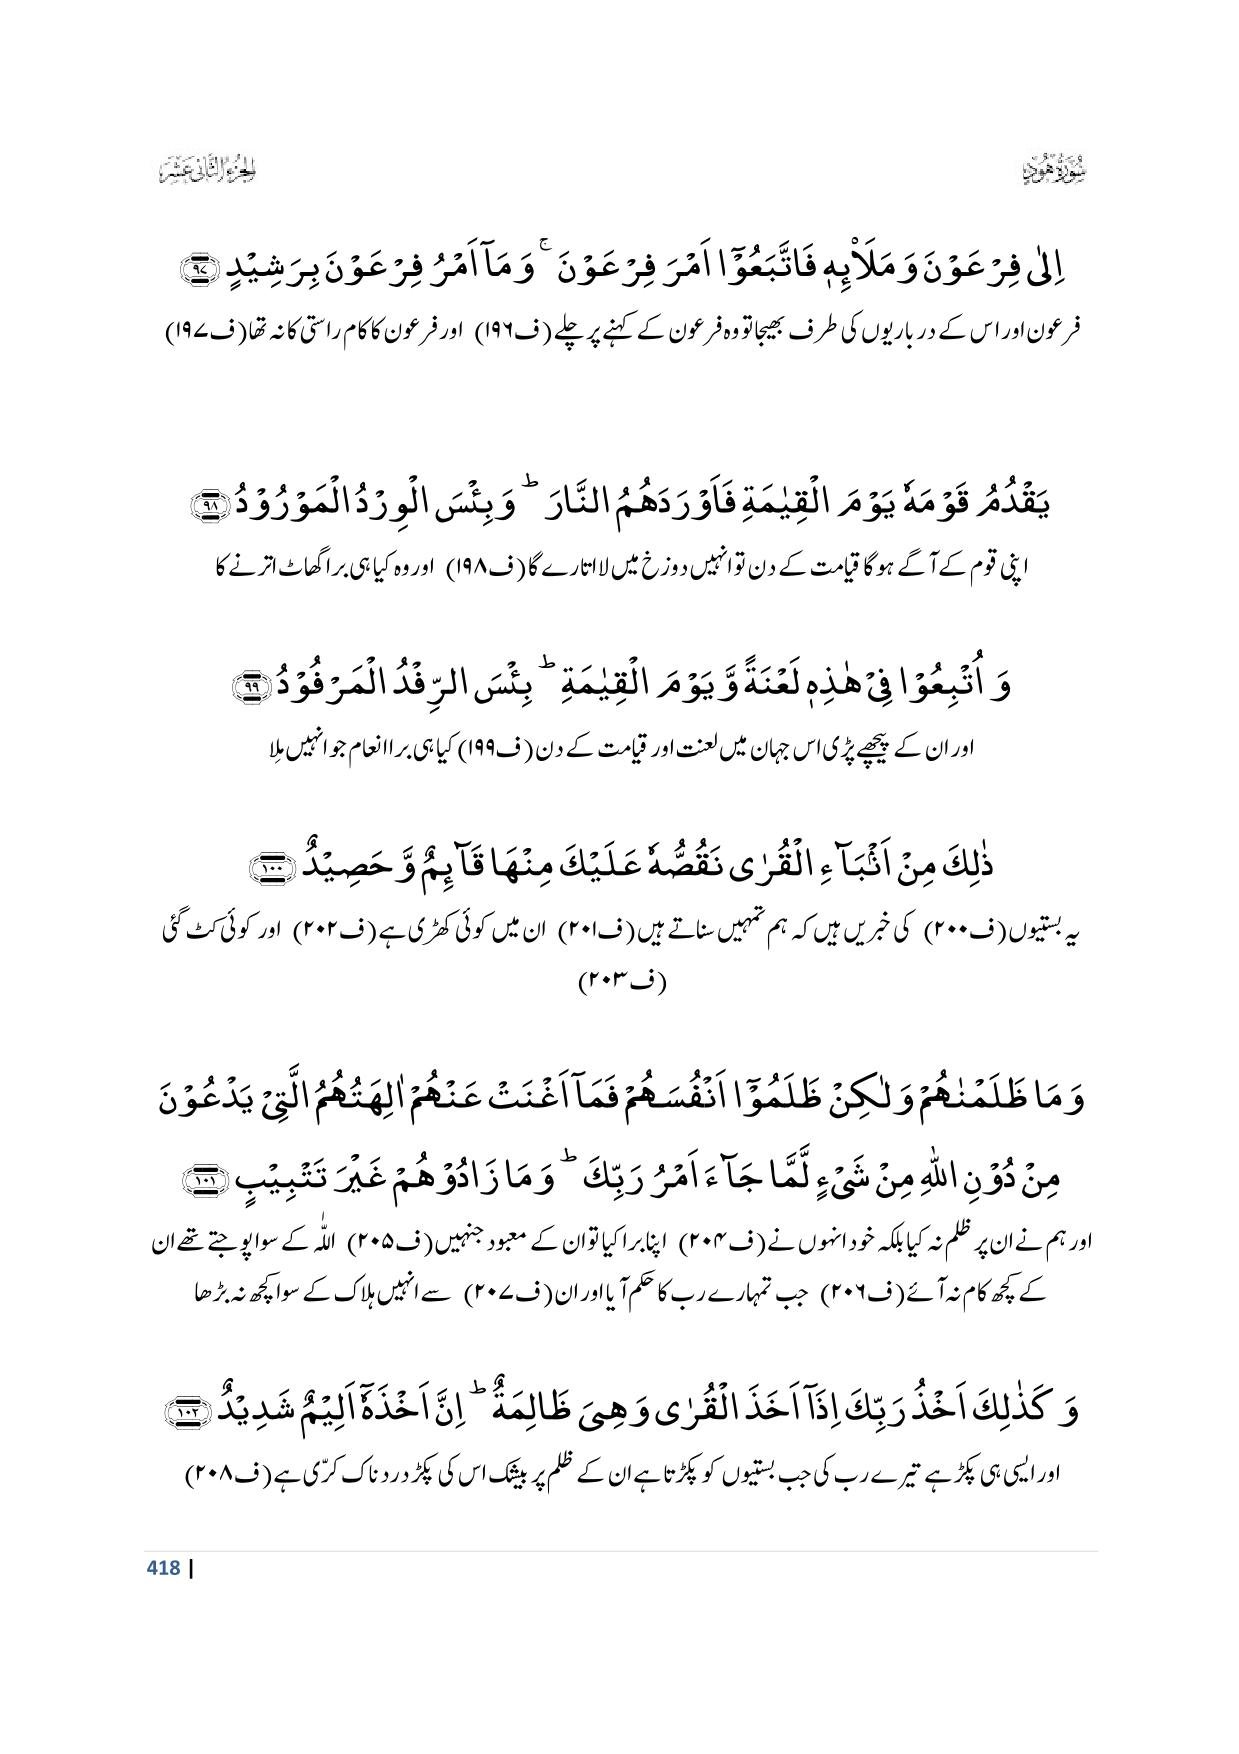 سُوْرَةُ هُوْدٍ
الجزء الثانی عشر
اِلٰى فِرْعَوْنَ وَ مَلَاۡىِٕهٖ فَاتَّبَعُوْۤا اَمْرَ فِرْعَوْنَ ۚ وَ مَاۤ اَمْرُ فِرْعَوْنَ بِرَشِیْدٍ ﴿۹۷﴾
فرعون اور اس کے درباریوں کی طرف بھیجا تو وہ فرعون کے کہنے پر چلے (ف۱۹۶) اور فرعون کا کام راستی کا نہ تھا (ف۱۹۷)
یَقْدُمُ قَوْمَهٗ یَوْمَ الْقِیٰمَةِ فَاَوْرَدَهُمُ النَّارَ ؕ وَ بِئْسَ الْوِرْدُ الْمَوْرُوْدُ ﴿۹۸﴾
اپنی قوم کے آگے ہوگا قیامت کے دن تو انہیں دوزخ میں لا اتارے گا (ف۱۹۸) اور وہ کیا ہی برا گھاٹ اترنے کا
وَ اُتْبِعُوْا فِیْ هٰذِهٖ لَعْنَةً وَّ یَوْمَ الْقِیٰمَةِ ؕ بِئْسَ الرِّفْدُ الْمَرْفُوْدُ ﴿۹۹﴾
اور ان کے پیچھے پڑی اس جہان میں لعنت اور قیامت کے دن (ف۱۹۹) کیا ہی برا انعام جو انہیں مِلا
ذٰلِكَ مِنْ اَنْۢبَآءِ الْقُرٰى نَقُصُّهٗ عَلَیْكَ مِنْهَا قَآىِٕمٌ وَّ حَصِیْدٌ ﴿۱۰۰﴾
یہ بستیوں (ف۲۰۰) کی خبریں ہیں کہ ہم تمہیں سناتے ہیں (ف۲۰۱) ان میں کوئی کھڑی ہے (ف۲۰۲) اور کوئی کٹ گئی
(ف۲۰۳)
وَ مَا ظَلَمْنٰهُمْ وَ لٰكِنْ ظَلَمُوْۤا اَنْفُسَهُمْ فَمَاۤ اَغْنَتْ عَنْهُمْ اٰلِهَتُهُمُ الَّتِیْ یَدْعُوْنَ
مِنْ دُوْنِ اللّٰهِ مِنْ شَیْءٍ لَّمَّا جَآءَ اَمْرُ رَبِّكَ ؕ وَ مَا زَادُوْهُمْ غَیْرَ تَتْبِیْبٍ ﴿۱۰۱﴾
اور ہم نے ان پر ظلم نہ کیا بلکہ خود انہوں نے (ف۲۰۴) اپنا برا کیا تو ان کے معبود جنہیں (ف۲۰۵) اللّٰہ کے سوا پوجتے تھے ان
کے کچھ کام نہ آئے (ف۲۰۶) جب تمہارے رب کا حکم آیا اور ان (ف۲۰۷) سے انہیں ہلاک کے سوا کچھ نہ بڑھا
وَ كَذٰلِكَ اَخْذُ رَبِّكَ اِذَاۤ اَخَذَ الْقُرٰى وَ هِیَ ظَالِمَةٌ ؕ اِنَّ اَخْذَهٗۤ اَلِیْمٌ شَدِیْدٌ ﴿۱۰۲﴾
اور ایسی ہی پکڑ ہے تیرے رب کی جب بستیوں کو پکڑتا ہے ان کے ظلم پر بیشک اس کی پکڑ دردناک کرّی ہے (ف۲۰۸)
418 |